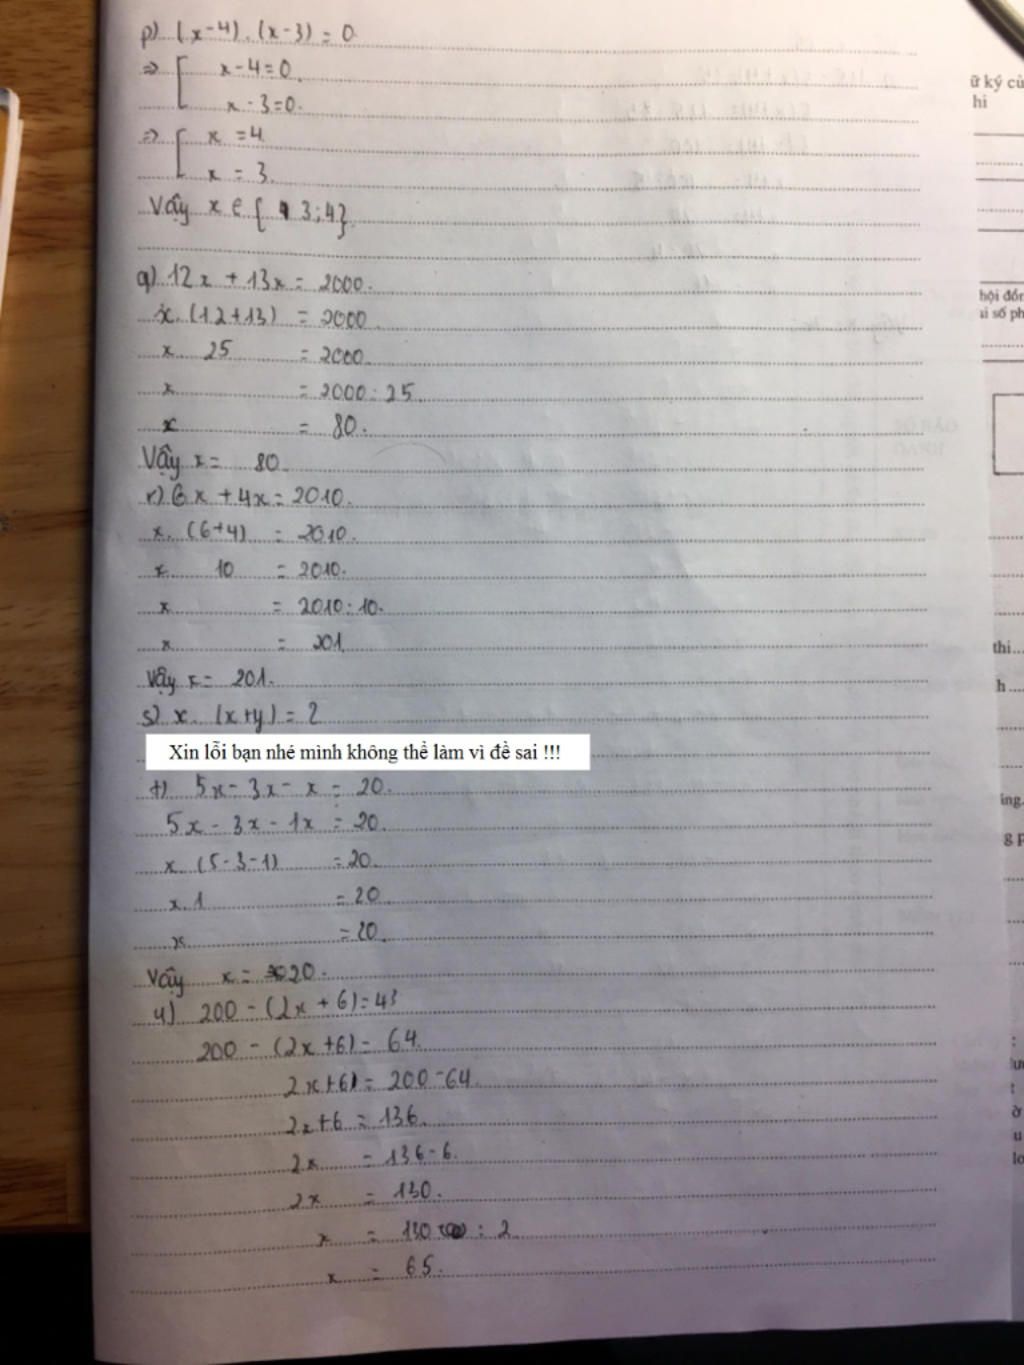 p) (x-4).(x-3) = 0
=> [ x-4=0
x-3=0.
=> [ x = 4
x = 3.
Vậy x ∈ { 3;4}.
q) 12x + 13x = 2000.
x.(12+13) = 2000
x 25 = 2000
x = 2000:25
x = 80.
Vậy x = 80
r) 6x + 4x = 2010.
x.(6+4) = 2010.
x 10 = 2010.
x = 2010:10.
x = 201
Vậy x = 201.
s) x.(x+y) = 2
Xin lỗi bạn nhé mình không thể làm vì đề sai !!!
t) 5x - 3x - x = 20.
5x - 3x - 1x = 20
x (5-3-1) = 20
x.1 = 20
x = 20
Vậy x = 20.
u) 200 - (2x + 6) = 4³
200 - (2x+6) = 64
2x+6) = 200-64
2x+6 = 136
2x = 136-6.
2x = 130.
x = 130 : 2
x = 65.
ữ ký củ
hi
hội đồn
ai số ph
thi...
h...